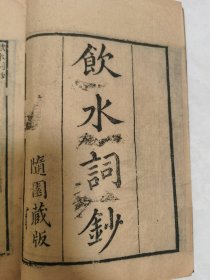 飲水詞鈔
隨園藏版